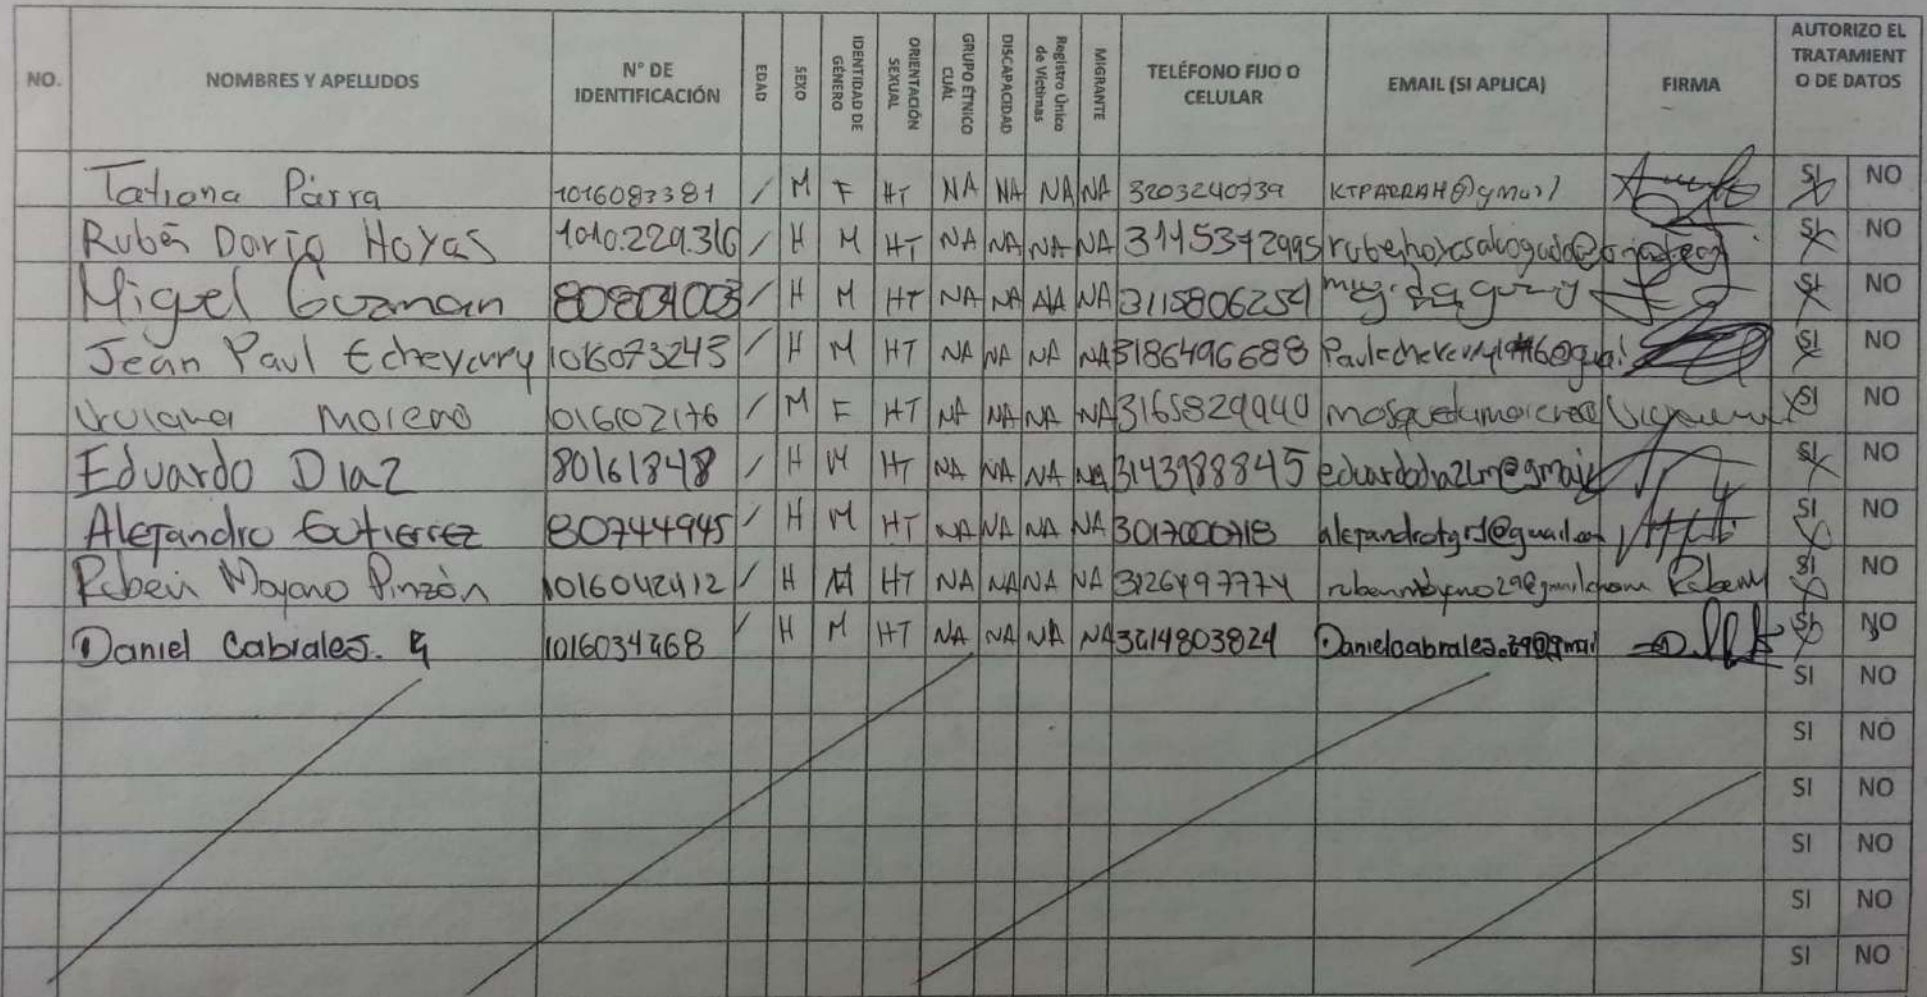 NO. NOMBRES Y APELLIDOS N° DE IDENTIFICACIÓN EDAD SEXO IDENTIDAD DE GÉNERO ORIENTACIÓN SEXUAL GRUPO ÉTNICO CUÁL DISCAPACIDAD Registro Único de Víctimas MIGRANTE TELÉFONO FIJO O CELULAR EMAIL (SI APLICA) FIRMA AUTORIZO EL TRATAMIENTO DE DATOS
Tatiana Parra 1016083381 / M F HT NA NA NA NA 3203240739 KTPARRAH@gmail SI NO
Rubén Darío Hoyos 1010.229.316 / H M HT NA NA NA NA 3115372995 SI NO
Miguel Guzman 80804003 / H M HT NA NA NA NA 3115806254 SI NO
Jean Paul Echeverry 1016073243 / H M HT NA NA NA NA 3186496688 SI NO
Moreno 1016102176 / M F HT NA NA NA NA 3165829940 SI NO
Eduardo Diaz 80161848 / H M HT NA NA NA NA 3143988845 eduardodiazlm@gmail SI NO
Alejandro Gutierrez 80744945 / H M HT NA NA NA NA 3017000718 SI NO
Ruben Moyano Pinzón 1016042412 / H M HT NA NA NA NA 3126497774 SI NO
Daniel Cabrales. G 1016034268 / H M HT NA NA NA NA 3214803824 Danielcabrales.29@gmail SI NO
SI NO
SI NO
SI NO
SI NO
SI NO
SI NO